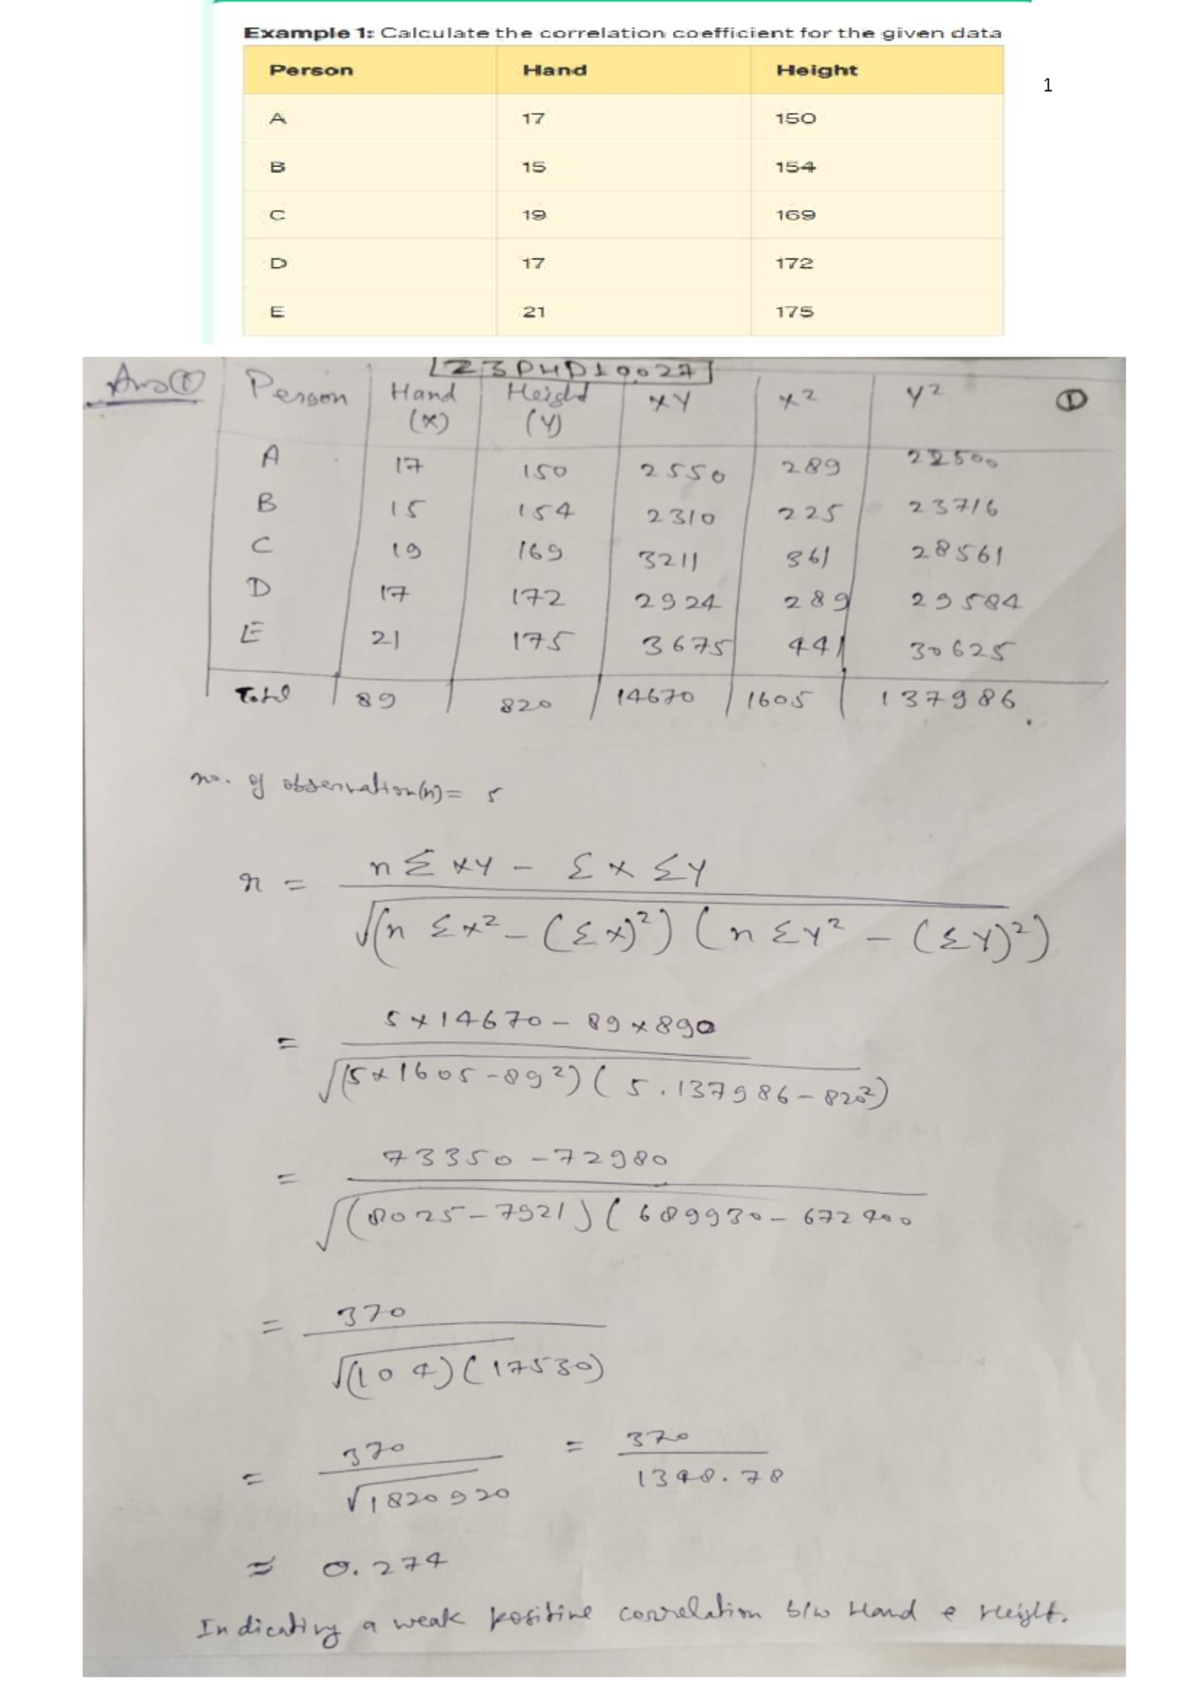 Example 1: Calculate the correlation coefficient for the given data
Person Hand Height
1
A 17 150
B 15 154
C 19 169
D 17 172
E 21 175
23PHD10027
Ans ① Person Hand (X) Height (Y) XY X² Y² ①
A 17 150 2550 289 22500
B 15 154 2310 225 23716
C 19 169 3211 361 28561
D 17 172 2924 289 29584
E 21 175 3675 441 30625
Total 89 820 14670 1605 137986.
no. of observation(n) = 5
r = n Σ XY - Σ X Σ Y
√(n Σ X² - (Σ X)²) (n Σ Y² - (Σ Y)²)
= 5 × 14670 - 89 × 890
√(5 × 1605 - 89²) (5 . 137986 - 820²)
= 73350 - 72980
√(8025 - 7921) (689930 - 672400
= 370
√(104) (17530)
= 370 = 370
√1820920 1348.78
≈ 0.274
Indicating a weak positive correlation b/w Hand & Height.